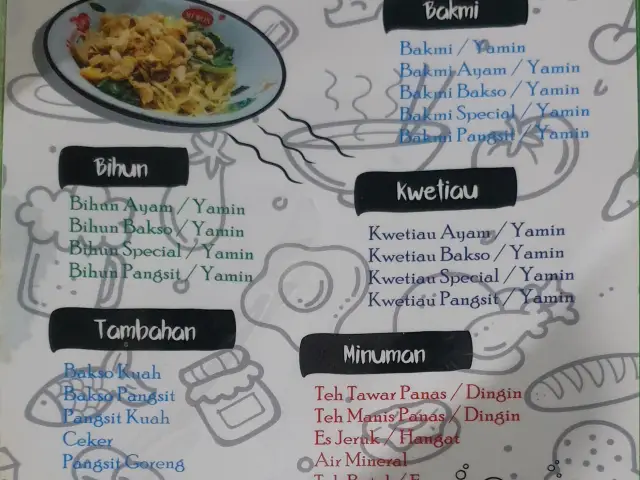 Bakmi
Bakmi / Yamin
Bakmi Ayam / Yamin
Bakmi Bakso / Yamin
Bakmi Special / Yamin
Bakmi Pangsit / Yamin
Bihun
Bihun Ayam / Yamin
Bihun Bakso / Yamin
Bihun Special / Yamin
Bihun Pangsit / Yamin
Kwetiau
Kwetiau Ayam / Yamin
Kwetiau Bakso / Yamin
Kwetiau Special / Yamin
Kwetiau Pangsit / Yamin
Tambahan
Bakso Kuah
Bakso Pangsit
Pangsit Kuah
Ceker
Pangsit Goreng
Minuman
Teh Tawar Panas / Dingin
Teh Manis Panas / Dingin
Es Jeruk / Hangat
Air Mineral